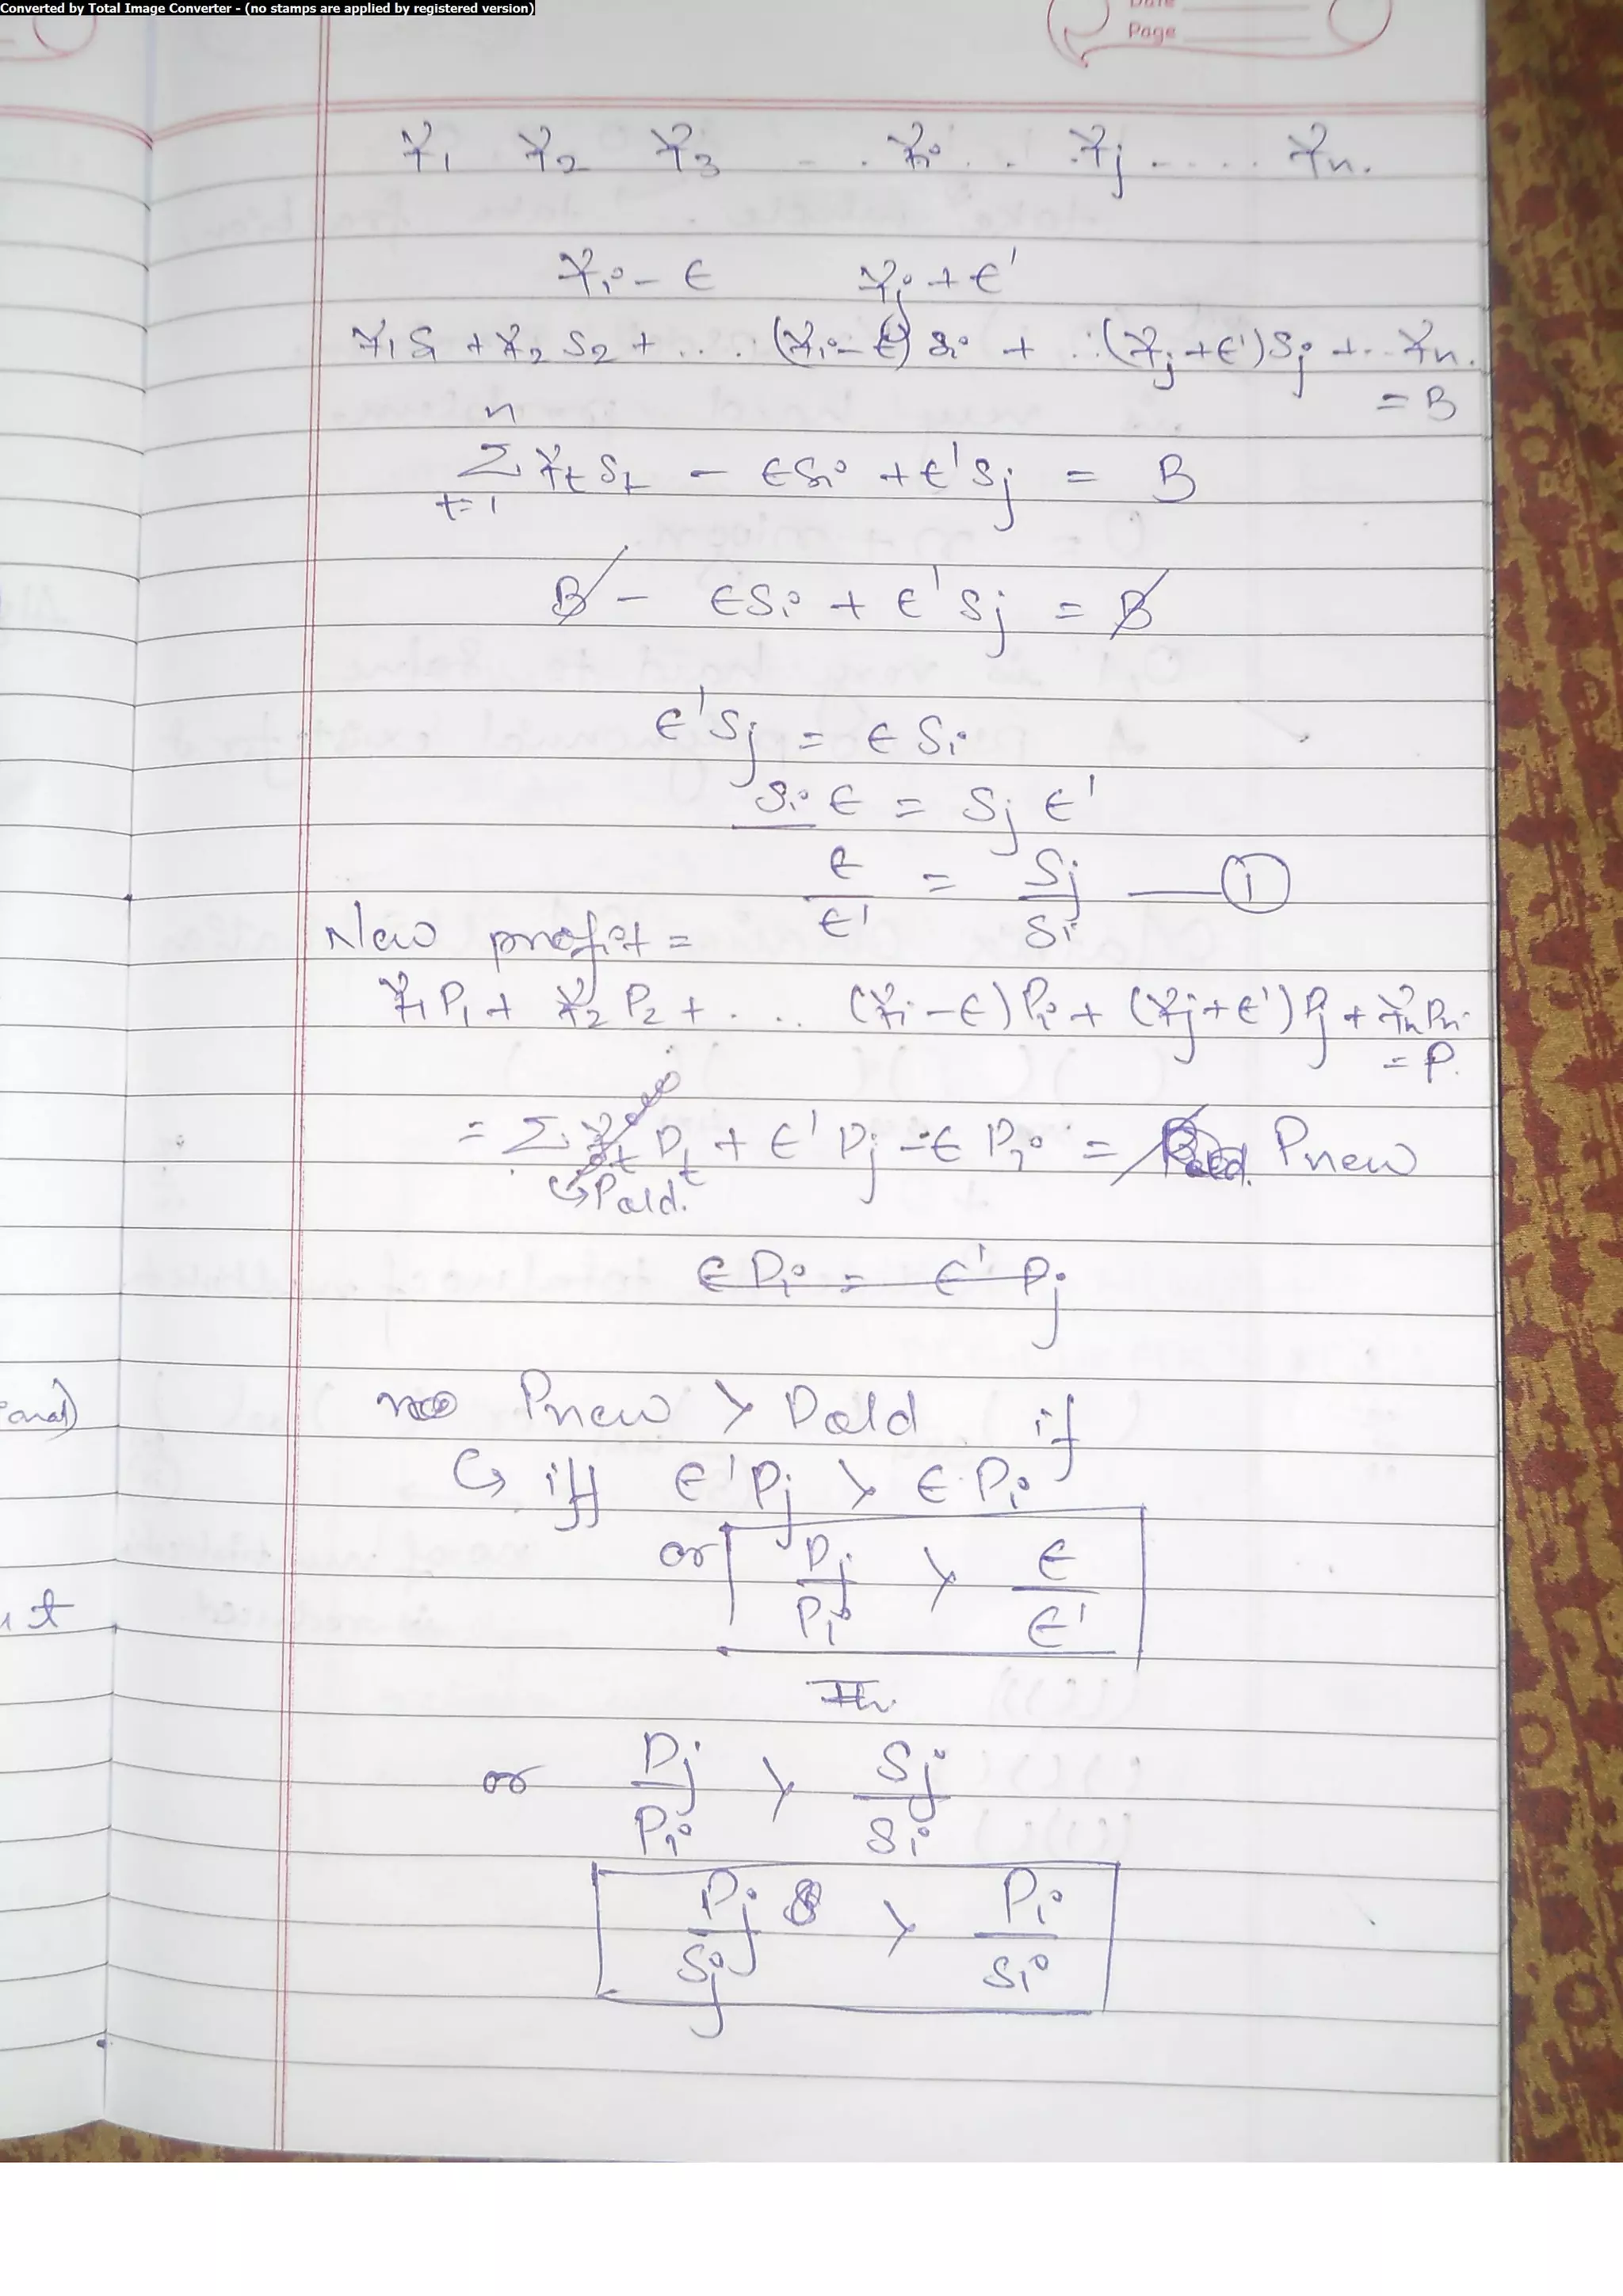 Converted by Total Image Converter - (no stamps are applied by registered version)
Date
Page
γ1 γ2 γ3 - . γi . . . γj . . . . . γn.
γi - ϵ γj + ϵ'
γ1 S1 + γ2 S2 + . . . . (γi - ϵ) Si + . . (γj + ϵ') Sj + .. γn.
= B
n
Σ γt St - ϵ Si + ϵ' Sj = B
t=1
B - ϵ Si + ϵ' Sj = B
ϵ' Sj = ϵ Si
Si ϵ = Sj ϵ'
ϵ/ϵ' = Sj/Si —— ①
New profit =
γ1 P1 + γ2 P2 + . . . (γi - ϵ) Pi + (γj + ϵ') Pj + γn Pn
= P.
= Σ γt Pt + ϵ' Pj - ϵ Pi = Pnew
↪ Pold.
ϵ Pi = ϵ' Pj
Pnew > Pold if
↪ iff ϵ' Pj > ϵ. Pi
or Pj/Pi > ϵ/ϵ'
or Pj/Pi > Sj/Si
Pj/Sj > Pi/Si